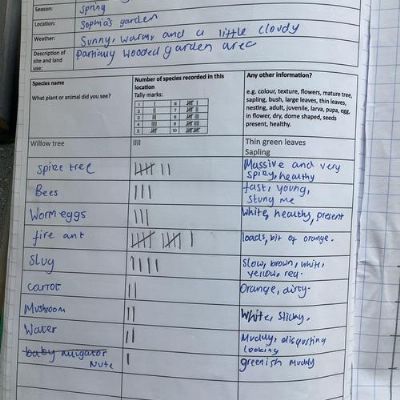 Season: Spring
Location: Sophia's garden
Weather: Sunny, warm and a little cloudy
Description of site and land use: Partialy wooded garden area
Species name
What plant or animal did you see?
Number of species recorded in this location
Tally marks:
Any other information?
e.g. colour, texture, flowers, mature tree, sapling, bush, large leaves, thin leaves, nesting, adult, juvenile, larva, pupa, egg, in flower, dry, dome shaped, seeds present, healthy.
Willow tree
Thin green leaves
Sapling
spike tree
Massive and very
spiky, healthy
Bees
fast, young,
stung me
Worm eggs
White, healthy, present
fire ant
loads, bit of orange.
Slug
Slow, brown, white,
yellow, red.
carrot
Orange, dirty.
Mushroom
White, Sticky.
Water
Muddy, disgusting
looking
baby alligator
Nute
greenish muddy